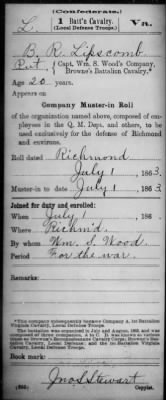 (Confederate.)
L. 1 Batt'n Cavalry, Va.
(Local Defense Troops.)
B. R. Lipscomb
Pvt, Capt. Wm. S. Wood's Company,
Browne's Battalion Cavalry.*
Age 20 years.
Appears on
Company Muster-in Roll
of the organization named above, composed of employees in the Q. M. Dept. and others, to be used exclusively for the defense of Richmond and environs.
Roll dated Richmond
July 1, 1863
Muster-in to date July 1, 1863
Joined for duty and enrolled:
When July 1, 186
Where Richm'd.
By whom Wm. S. Wood
Period For the war.
Remarks:
*This company subsequently became Company A, 1st Battalion Virginia Cavalry, Local Defense Troops.
Book mark:
Jno S Stewart
Copyist.